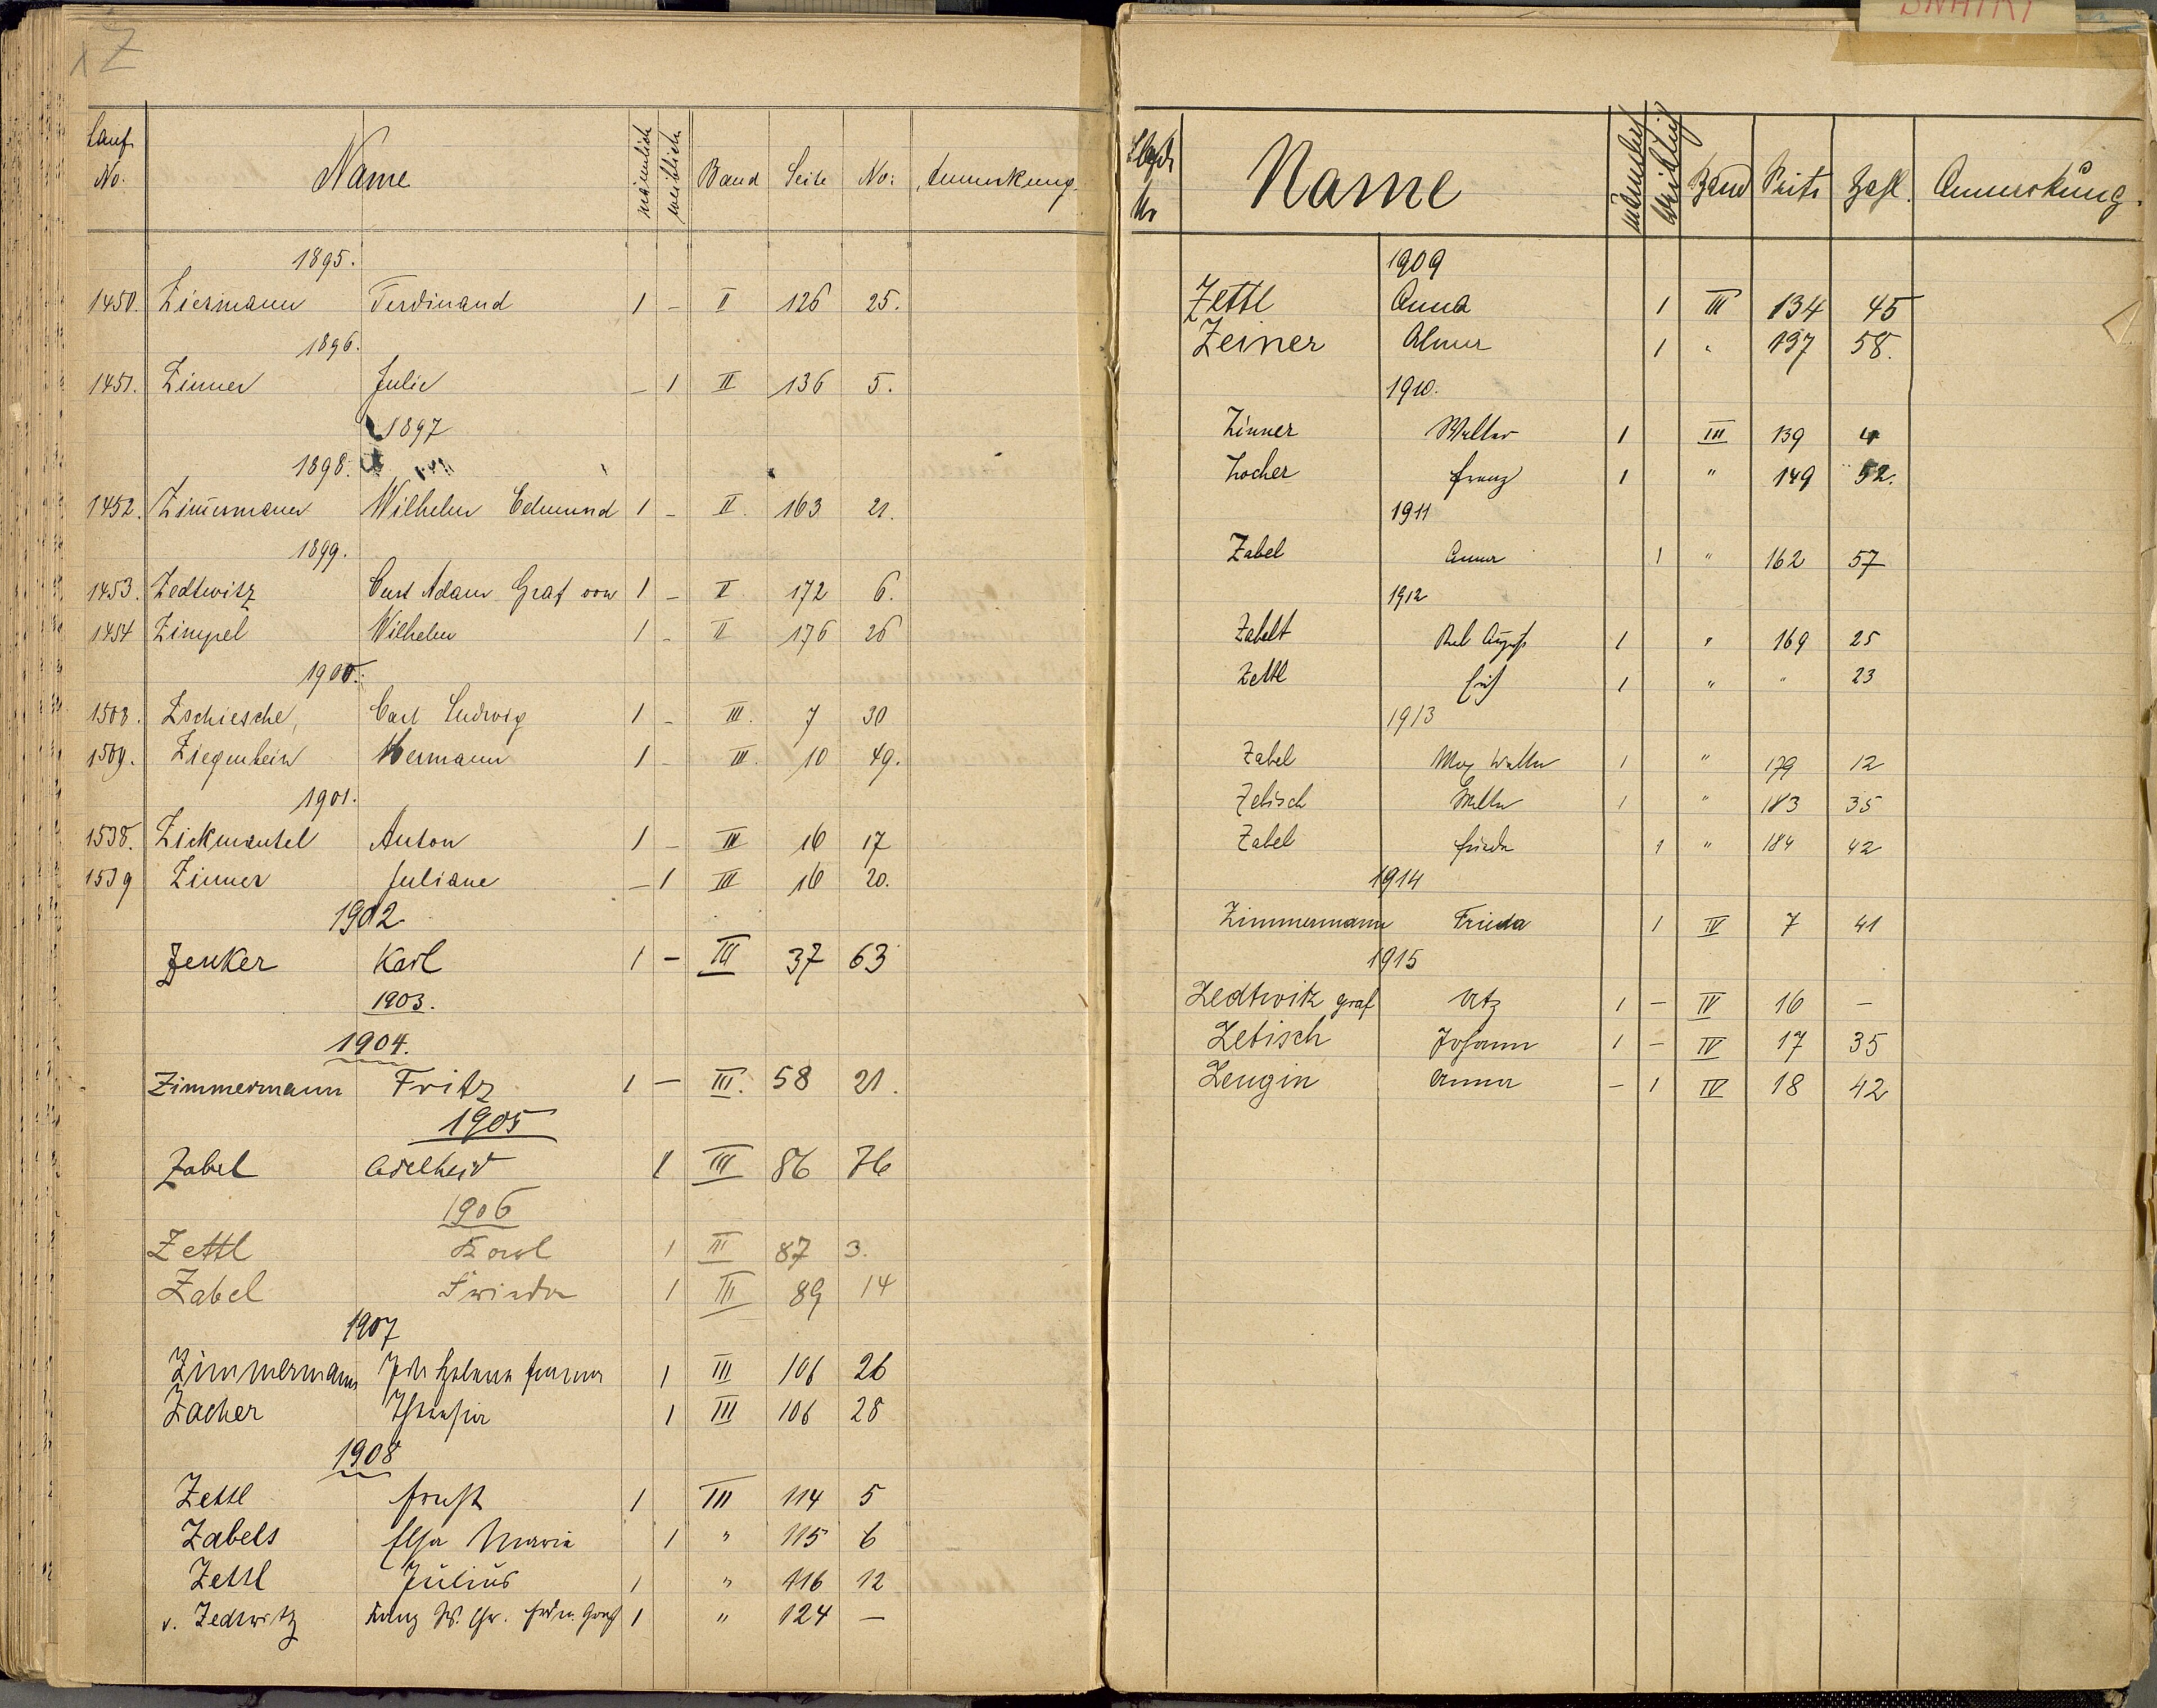 Z
Lauf. No. Name männlich weiblich Band Seite No: Anmerkung.
1895.
1450. Ziermann Ferdinand 1 – II 126 25.
1896.
1451. Zinner Julie – 1 II 136 5.
1897
1898.
1452. Zim̄ermann Wilhelm Edmund 1 – II. 163 21.
1899.
1453. Zedtwitz Curt Adam Graf von 1 – II 172 6.
1454 Zimpel Wilhelm 1 – II 176 26
1900.
1508. Zschiesche, Carl Ludwig 1 – III. 7 30
1509. Ziegenhein Hermann 1 – III. 10 49.
1901.
1538. Zickmantel Anton 1 – III 16 17
1539 Zinner Juliane – 1 III 16 20.
1902
Zenker Karl 1 – III 37 63
1903.
1904.
Zimmermann Fritz 1 – III. 58 21.
1905
Zabel Adelheid 1 III 86 76
1906
Zettl Karl 1 III 87 3.
Zabel Frieda 1 III 89 14
1907
Zimmermann Helene 1 III 106 26
Zacher 1 III 106 28
1908
Zettl Ernst 1 III 114 5
Zabels Elsa Maria 1 " 115 6
Zettl Julius 1 " 116 12
v. Zedtwitz Franz Graf 1 " 124 –
Name männlich weiblich Band Seite Zahl. Anmerkung.
1909
Zettl Anna 1 III 134 45
Zeiner 1 " 137 58.
1910.
Zinner Walter 1 III 139 4
Zocher Franz 1 " 149 52.
1911
Zabel Anna 1 " 162 57
1912
Zabelt August 1 " 169 25
Zettl 1 " " 23
1913
Zabel Max Walter 1 " 179 12
Zetisch Walter 1 " 183 35
Zabel Frieda 1 " 184 42
1914
Zimmermann Frieda 1 IV 7 41
1915
Zedtwitz graf Utz 1 – IV 16 –
Zetisch Johann 1 – IV 17 35
Zeugin Anna – 1 IV 18 42